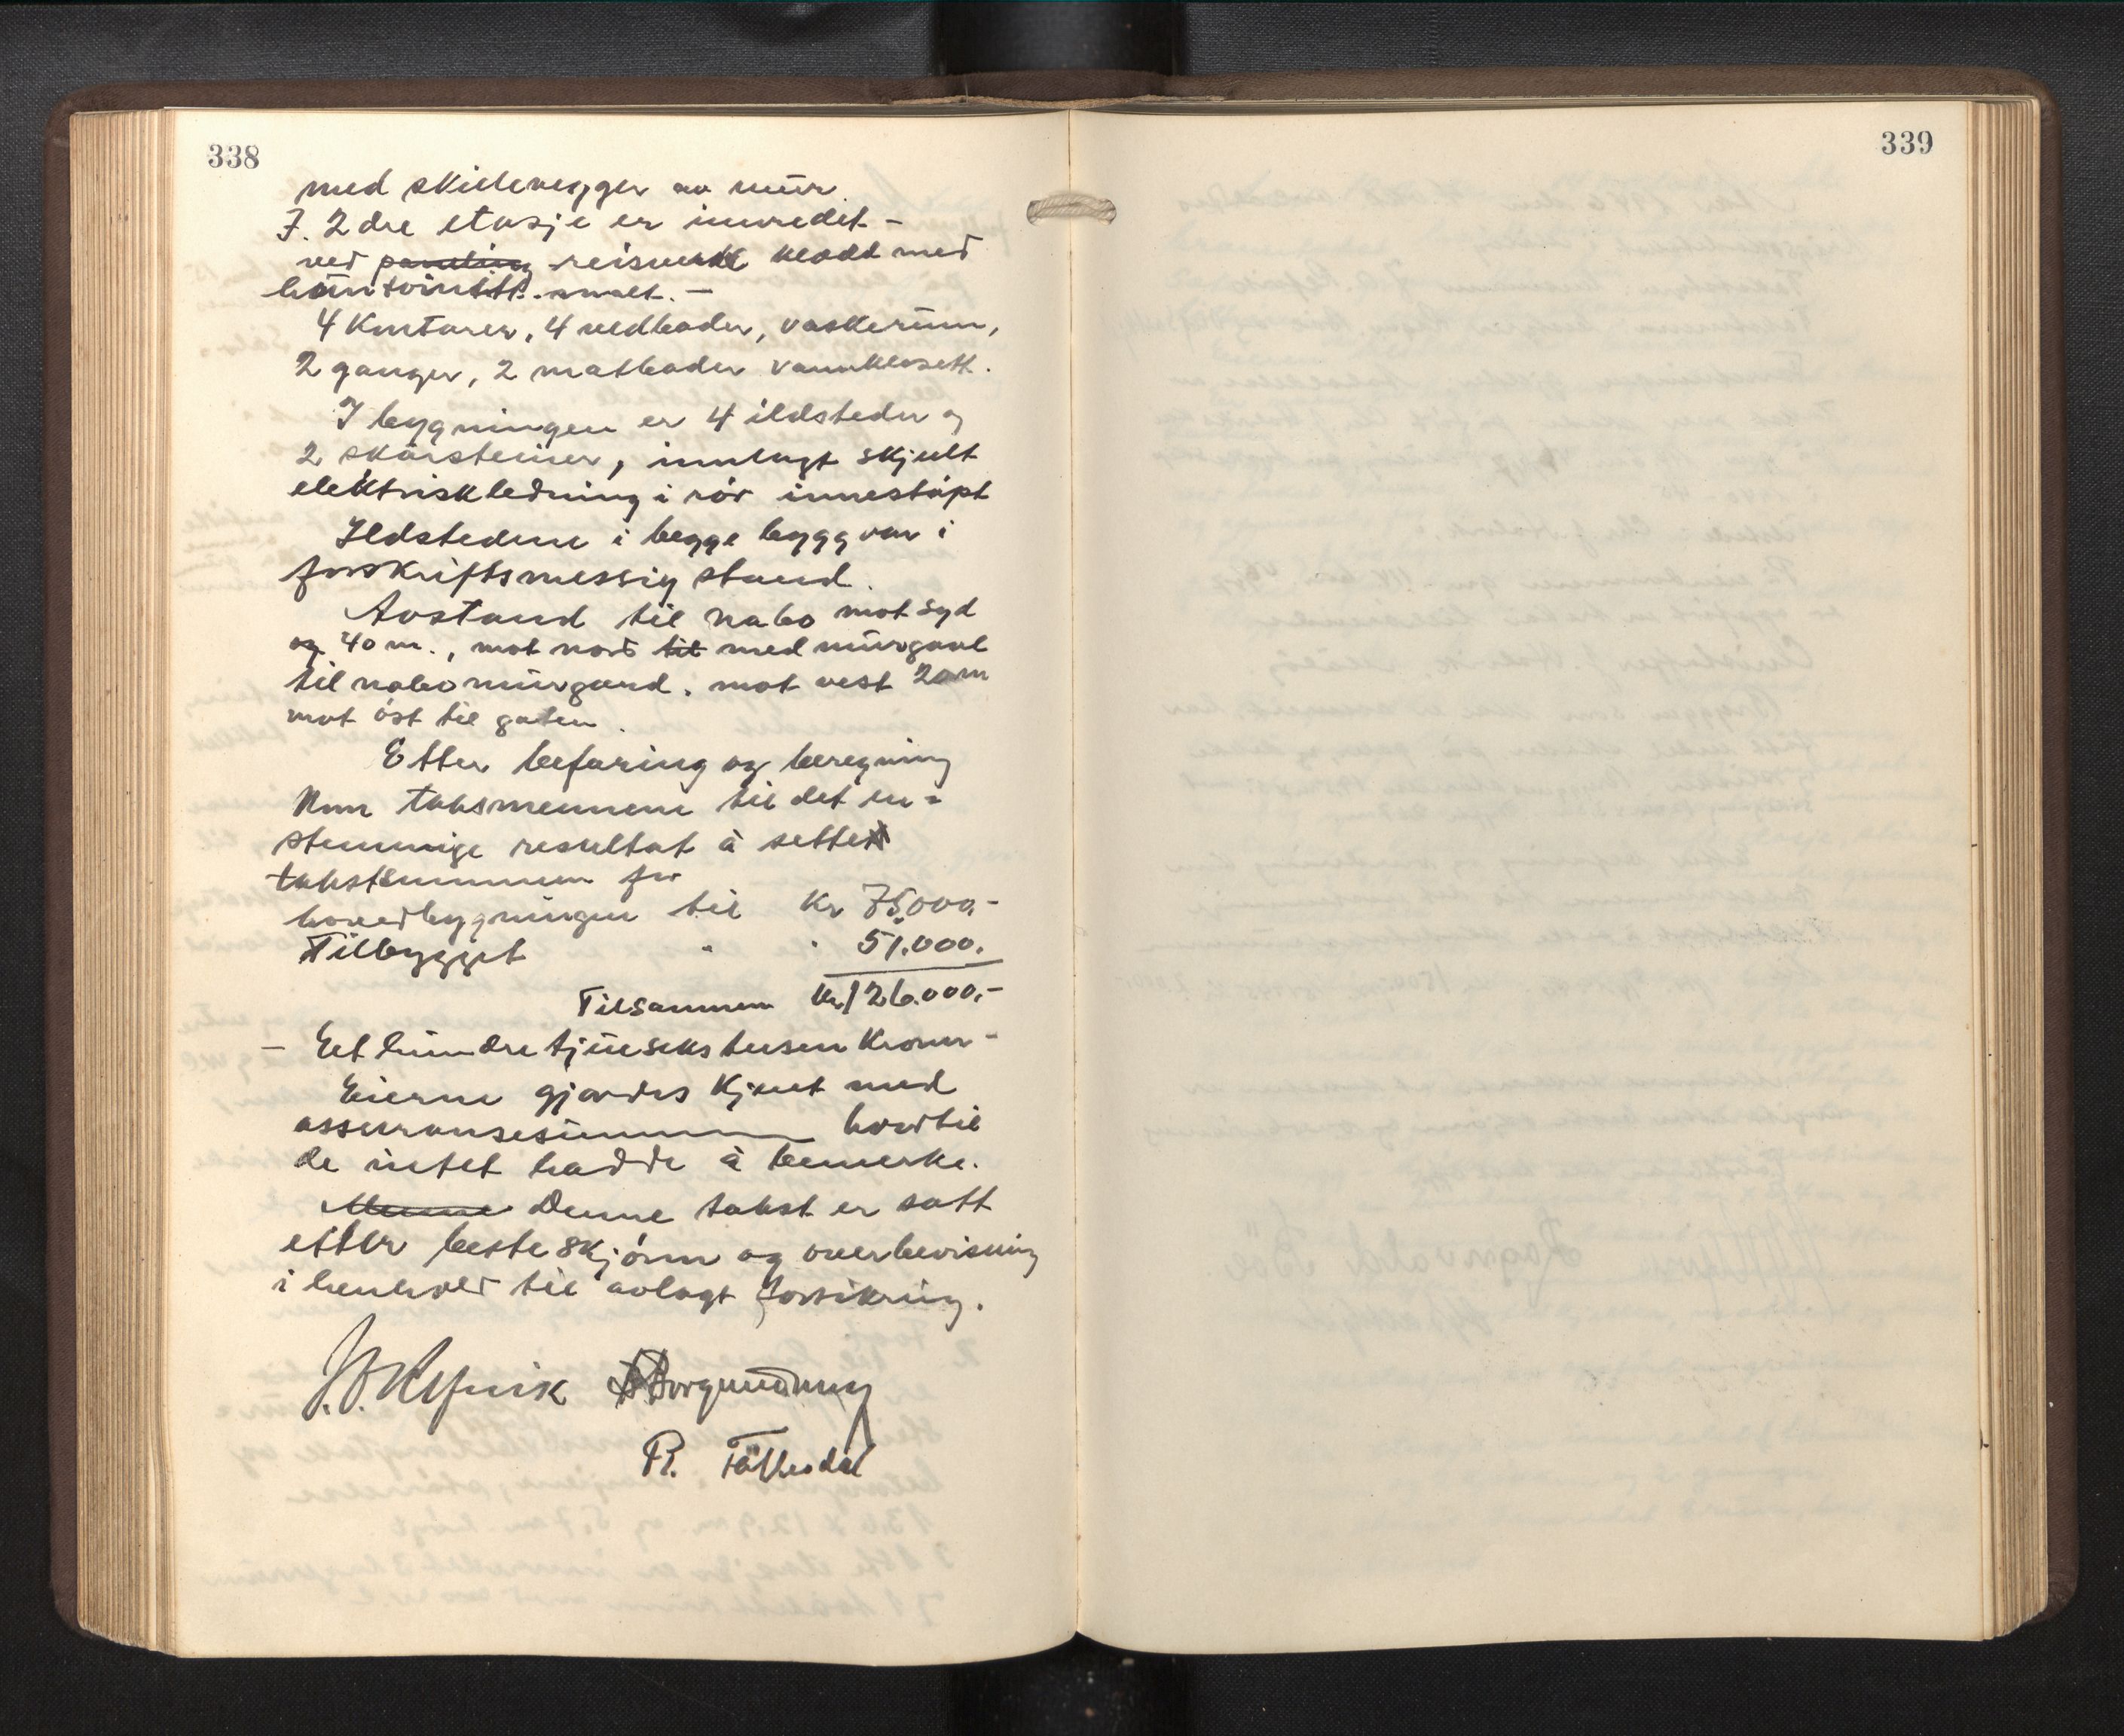 338
med skillevegger av mur.
I. 2dre etasje er innredet -
ved paneling reisverk kledd med
malt. -
4 Kontorer, 4 vedboder, vaskerum,
2 ganger, 2 matboder vannklosett.
I bygningen er 4 ildsteder og
2 skorsteiner, innlagt skjult
elektrisk ledning i rör innestöpt
Ildstedene i begge bygg var i
forskriftsmessig stand.
Avstand til nabo mot syd
og 40 m., mot nord til med murgavl
til nabomurgard. mot vest 20 m
mot öst til gaten.
Etter befaring og beregning
kom takstmennene til det en=
stemmige resultat å sette
takstsummen for
hovedbygningen til Kr 75.000,-
Tilbygget " " 51.000.
Tilsammen Kr. 126.000,-
- Et hundre tjueseks tusen Kroner -
Eierne gjordes kjent med
assuransesummen hvortil
de intet hadde å bemerke.
Denne takst er satt
etter beste skjönn og overbevisning
i henhold til avlagt forsikring.
Borgundvaag
R.
339